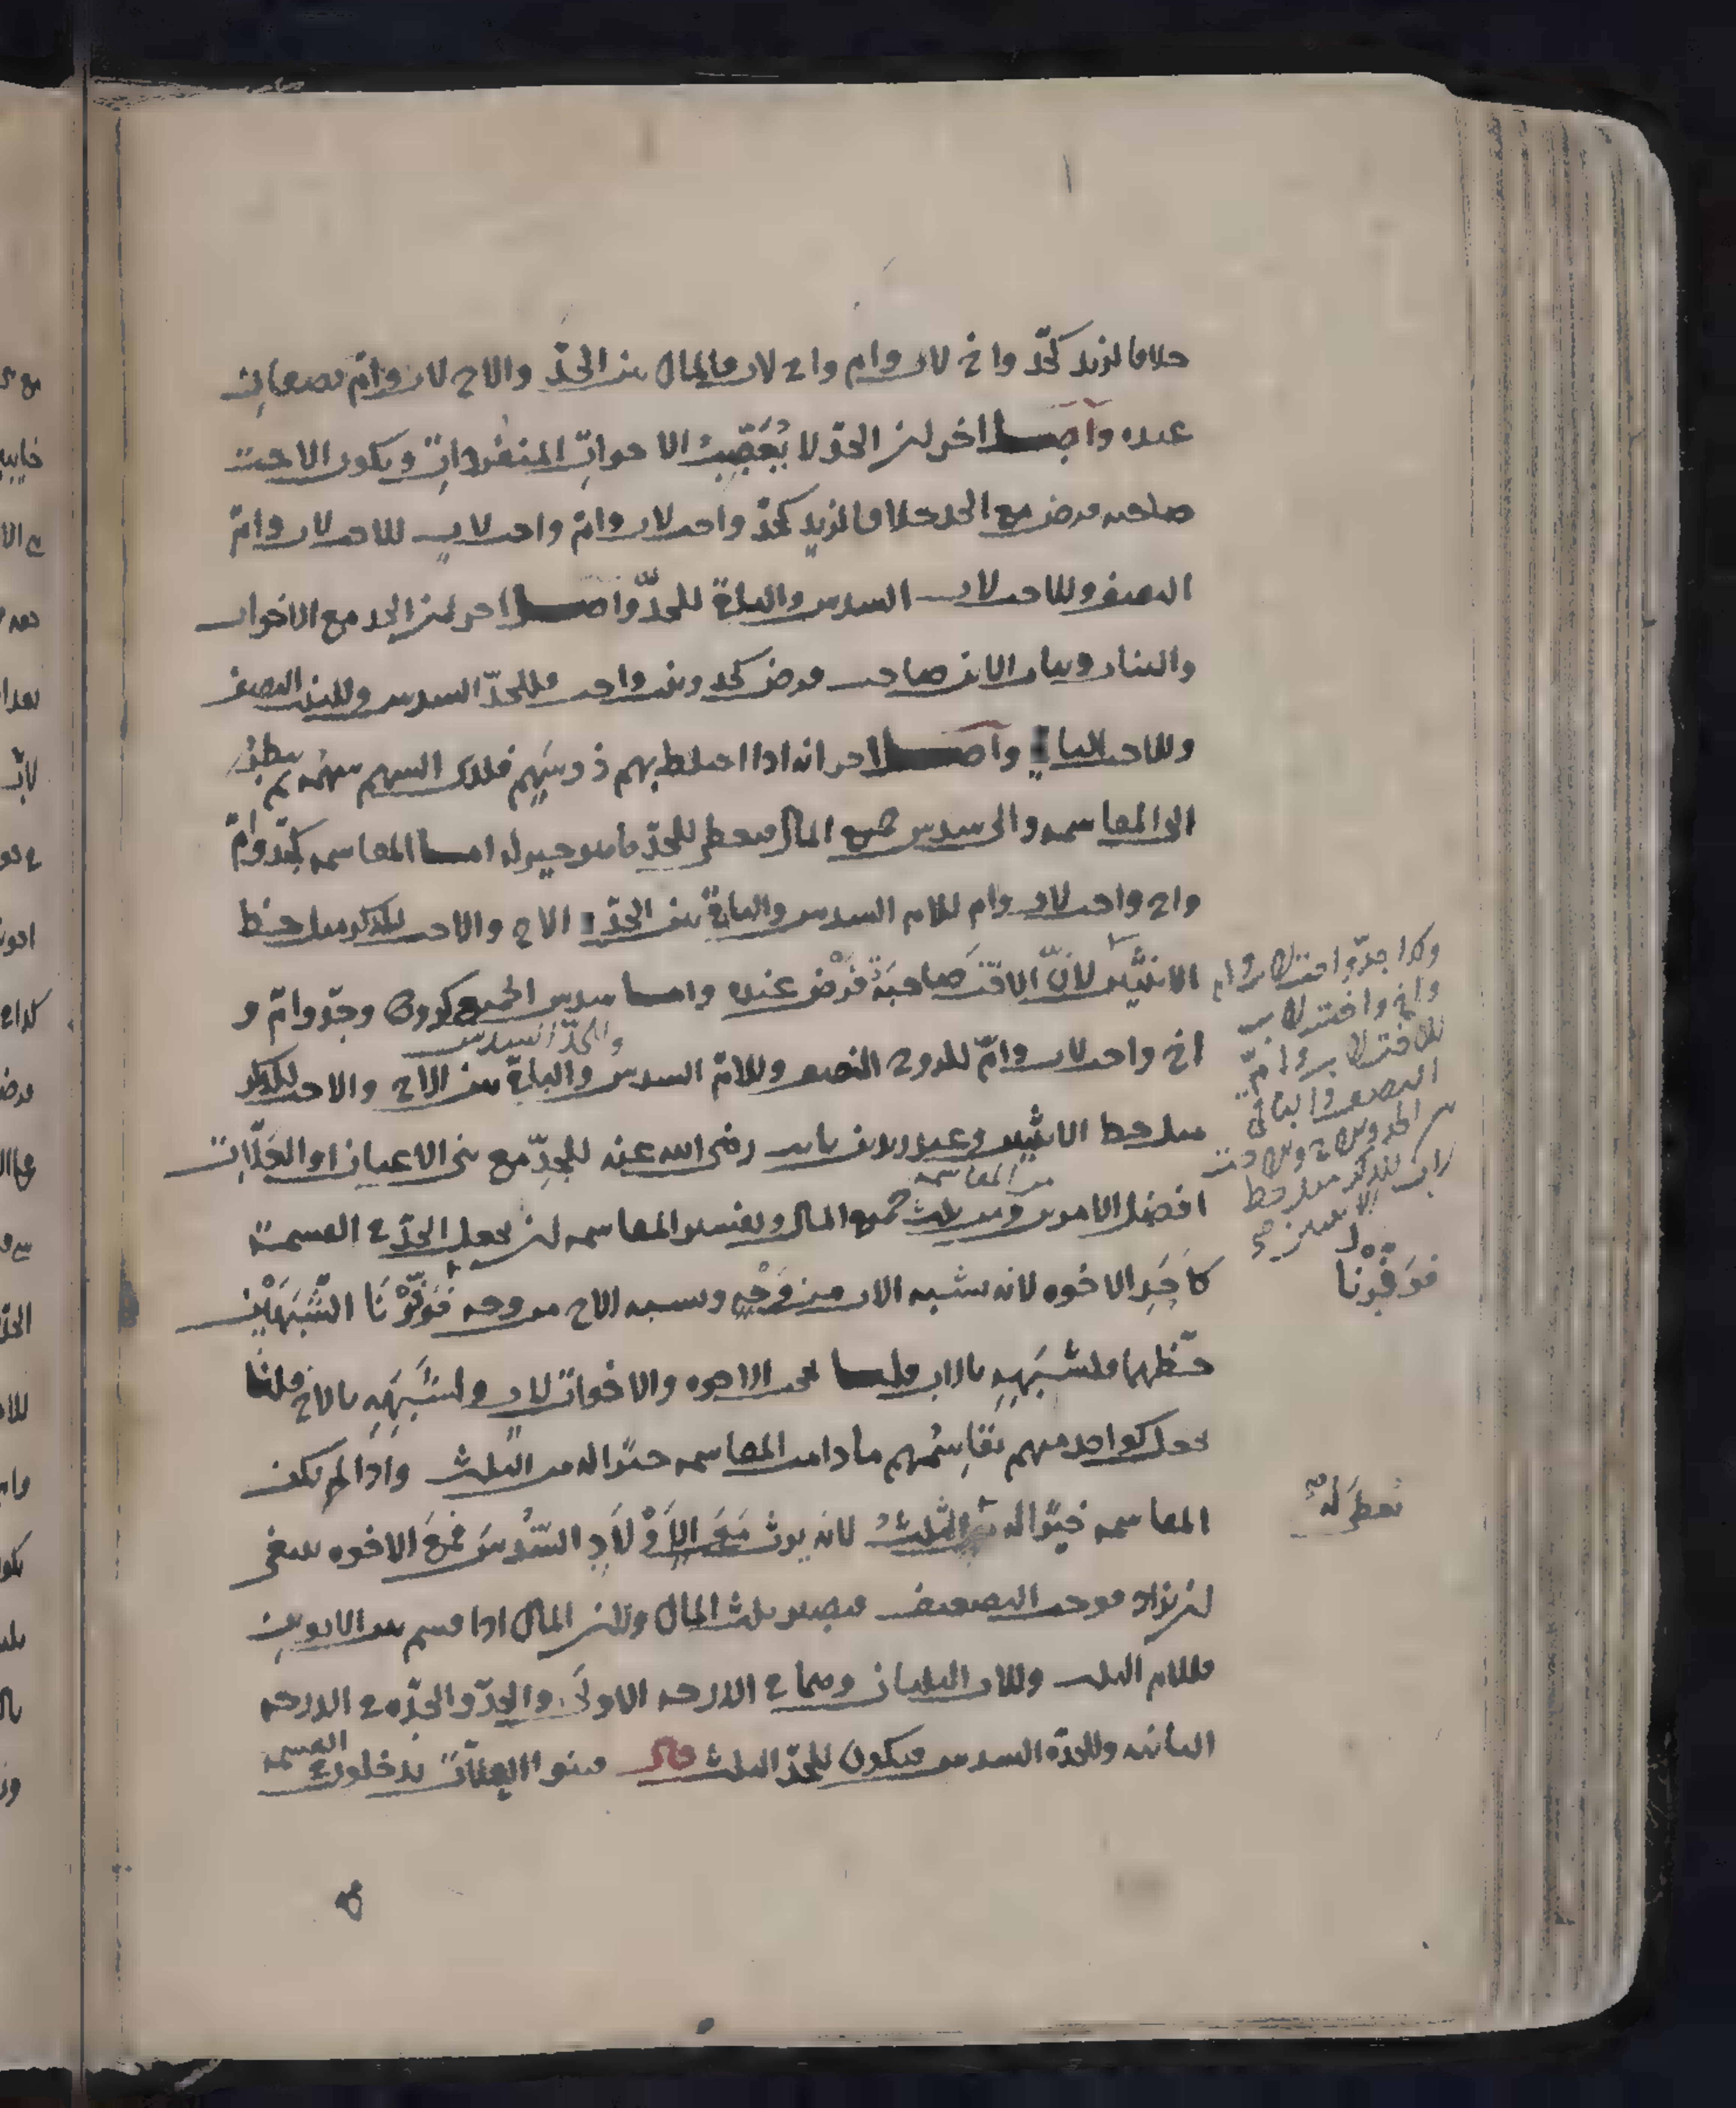 خلافا لزيد كجدّ واخ لاب وام واخ لاب فالمال بين الجدّ والاخ لاب وامّ نصفان
عنده وأصل اخر ان الجدّ لا يُعَصِّبُ الاخواتِ المنفرداتِ ويكون الاخت
صاحبه فرض مع الجد خلافا لزيدٍ كجدّ واخت لاب وامّ واخت لابٍ للاخت لاب وامّ
النصف وللاخت لاب السدس والباقي للجدّ واصل اخر ان الجد مع الاخوات
والبنات وبنات الابن صاحب فرض كجد وبنت واخت فللجدّ السدس وللبنت النصف
وللاخت الباقي وأصل اخر انه اذا اختلط بهم ذو سَهمٍ فلذلك السهم سهمُه ثم ينظرُ
الى المقاسمه والى سدس جميع المال فيعطى للجدّ ما هو خير له امـا المقاسمه كجدّ وامّ
واخ واخت لاب وام للام السدس والباقي بين الجدّ الاخ والاخت للذكر مثل حظ
الانثَيَين لانّ الاختَ صاحبةُ فَرْضٍ عنده وامـا سدس الجميع كزوج وجدّ وامّ و
والجدّ السدس
اخ واخت لاب وامّ للزوج النصف وللامّ السدس والباقي بين الاخ والاخت للذكر
مثل حظ الانثيين وعند زيد بن ثابت رضى الله عنه للجدِّ مع بني الاعيان او العَلّات
من المقاسمه
افضل الامرين ومن ثلث جميع المال وتفسير المقاسمه ان يجعل الجدّ في القسمة
كأحَدِ الاخوه لانه يشبه الاب من وَجْهٍ ويشبه الاخ من وجه فَوَفَّرْنَا الشَّبَهَيْنِ
حَظَّهما فلشَبَهِهِ بالاب قلنـا يحجب الاخوه والاخوات لام ولشَبَهِهِ بالاخ قلنا
يجعل كواحد منهم يقاسِمُهم ما دامت المقاسمه خيرًا له من الثلث واذا لم يكن
المقاسمه خيرًا له الثلثُ لانه يرث مَعَ الاَوْلَادِ السُّدُسَ فمَعَ الاخوه ينبغى
ان يزاد فوجب التضعيف فيصير ثلث المال ولان المال اذا قسم بين الابوين
فللام الثلث وللاب الثلثان وهما في الدرجه الاولى والجدّ والجدّه في الدرجه
الثانيه وللجدّه السدس فيكون للجدّ الثلث قال وبنو العلّات يدخلون في القسمه
وكذا جدّ واخت لاب وام
واخ واخت لاب
للاخت لاب وامّ
النصف والباقي
بين الجد وبين الاخ وبين الاخت
لاب للذكر مثل حظ
الانثيين صح
فوفرنا
يعطى له